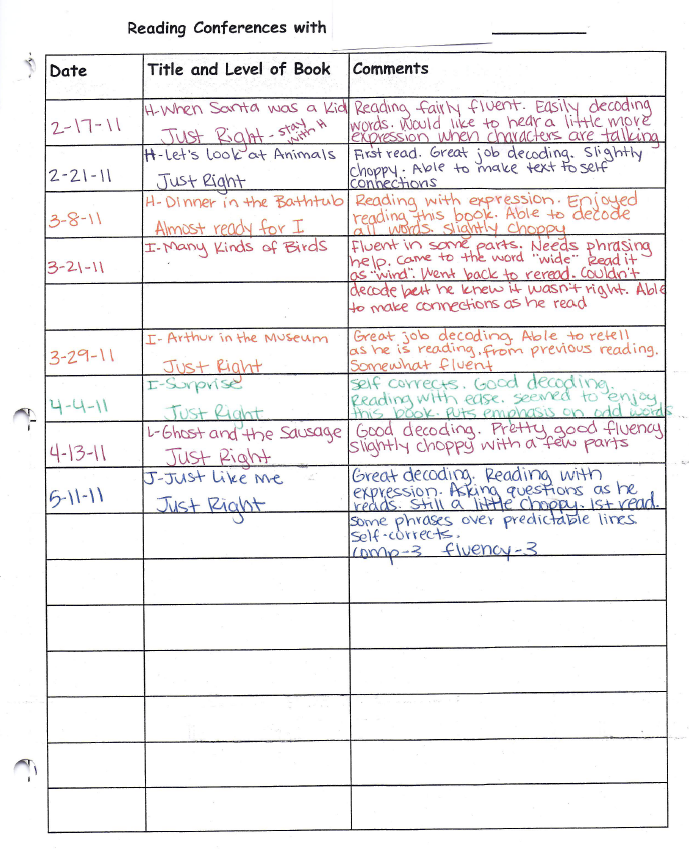 Reading Conferences with
Date Title and Level of Book Comments
2-17-11
H-When Santa was a Kid
Just Right - stay with H
Reading fairly fluent. Easily decoding
words. Would like to hear a little more
expression when characters are talking
2-21-11
H-Let's Look at Animals
Just Right
First read. Great job decoding. Slightly
choppy. Able to make text to self
connections
3-8-11
H-Dinner in the Bathtub
Almost ready for I
Reading with expression. Enjoyed
reading this book. Able to decode
all words. slightly choppy
3-21-11
I-Many Kinds of Birds
Fluent in some parts. Needs phrasing
help. Came to the word "wide" Read it
as "wind". Went back to reread. Couldn't
decode but he knew it wasn't right. Able
to make connections as he read
3-29-11
I-Arthur in the Museum
Just Right
Great job decoding. Able to retell
as he is reading, from previous reading.
Somewhat fluent
4-4-11
I-Surprise
Just Right
Self corrects. Good decoding.
Reading with ease. seemed to enjoy
this book. Puts emphasis on odd words
4-13-11
L-Ghost and the Sausage
Just Right
Good decoding. Pretty good fluency
Slightly choppy with a few parts
5-11-11
J-Just Like Me
Just Right
Great decoding. Reading with
expression. Asking questions as he
reads. Still a little choppy. 1st read.
some phrases over predictable lines
Self-corrects.
comp-3 fluency-3